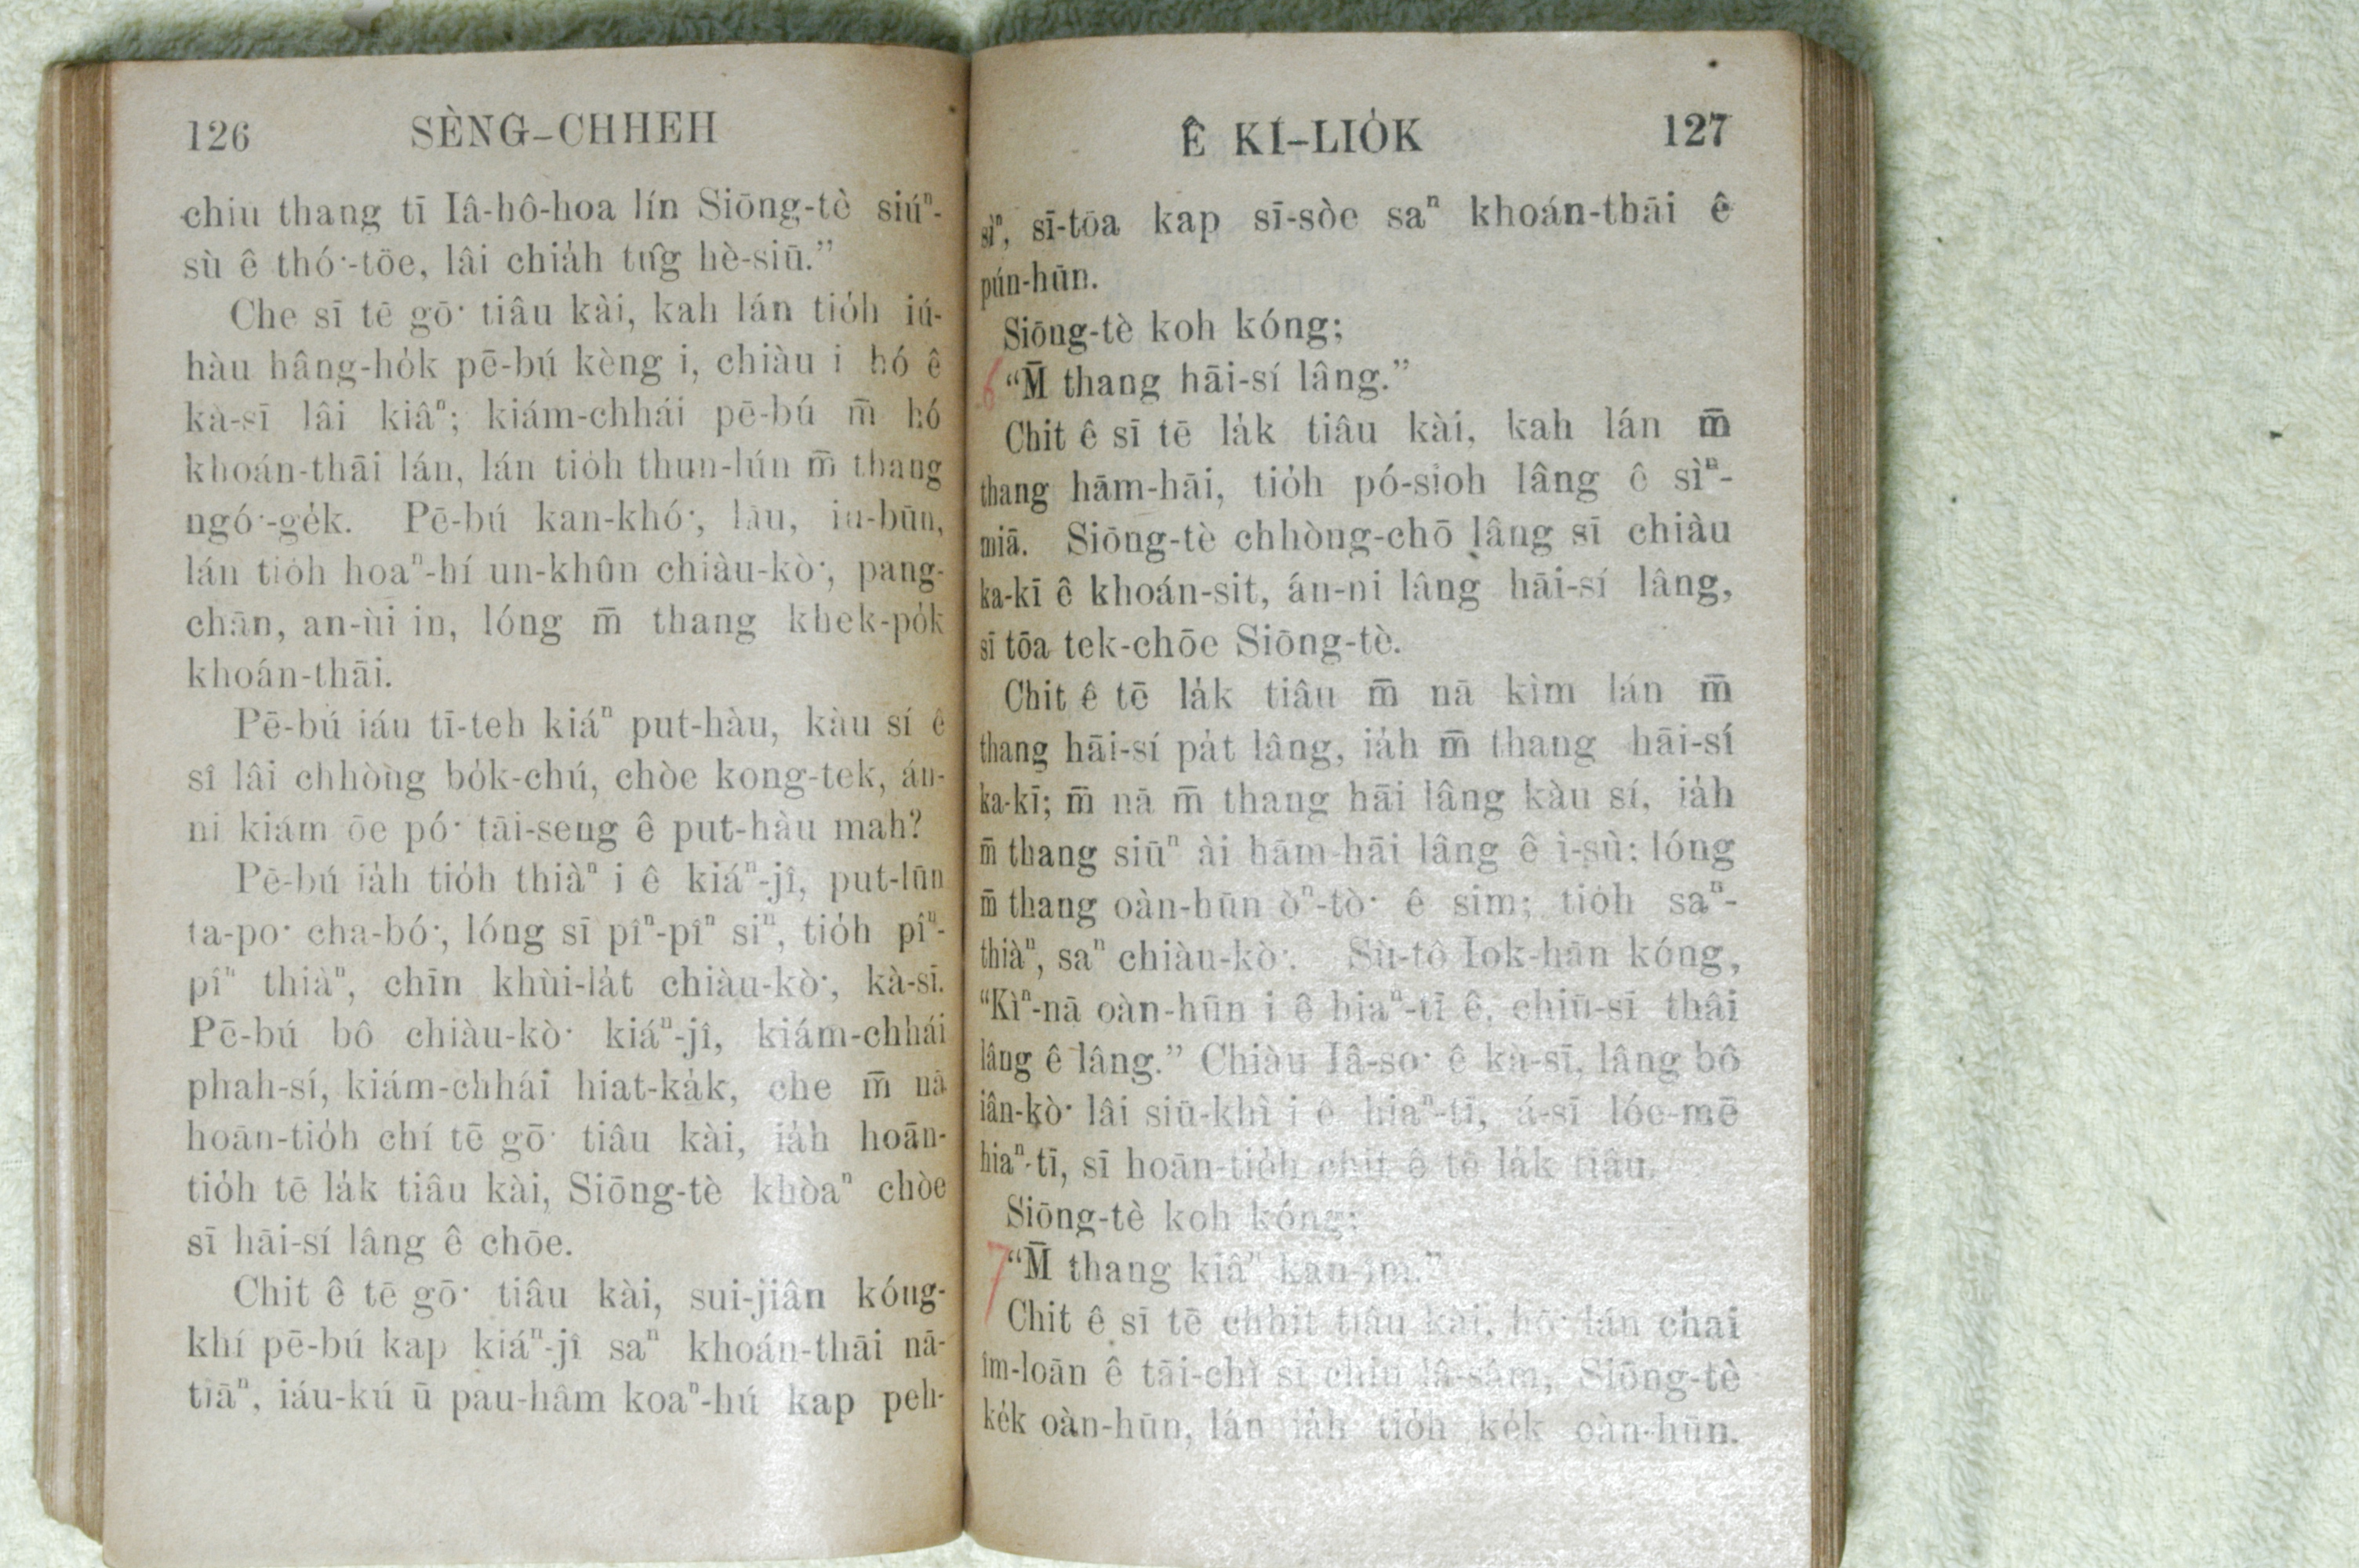 126 SÈNG-CHHEH
chiu thang tī Iâ-hô-hoa lín Siōng-tè siúⁿ-
sù ê thó͘-tōe, lâi chia̍h tn̂g hè-siū.”
Che sī tē gō͘ tiâu kài, kah lán tio̍h iú-
hàu hâng-ho̍k pē-bú kèng i, chiàu i hó ê
kà-sī lâi kiâⁿ; kiám-chhái pē-bú m̄ hó
khoán-thāi lán, lán tio̍h thun-lún m̄ thang
ngó͘-ge̍k. Pē-bú kan-khó͘, lāu, iu-būn,
lán tio̍h hoaⁿ-hí un-khûn chiàu-kò͘, pang-
chān, an-ùi in, lóng m̄ thang khek-po̍k
khoán-thāi.
Pē-bú iáu tī-teh kiáⁿ put-hàu, kàu sí ê
sî lâi chhòng bo̍k-chú, chòe kong-tek, án-
ni kiám ōe pó͘ tāi-seng ê put-hàu mah?
Pē-bú ia̍h tio̍h thiàⁿ i ê kiáⁿ-jî, put-lūn
ta-po͘ cha-bó͘, lóng sī pîⁿ-pîⁿ siⁿ, tio̍h pîⁿ-
pîⁿ thiàⁿ, chīn khùi-la̍t chiàu-kò͘, kà-sī.
Pē-bú bô chiàu-kò͘ kiáⁿ-jî, kiám-chhái
phah-sí, kiám-chhái hiat-ka̍k, che m̄ nā
hoān-tio̍h chí tē gō͘ tiâu kài, ia̍h hoān-
tio̍h tē la̍k tiâu kài, Siōng-tè khòaⁿ chòe
sī hāi-sí lâng ê chōe.
Chit ê tē gō͘ tiâu kài, sui-jiân kóng-
khí pē-bú kap kiáⁿ-jî saⁿ khoán-thāi nā-
tiāⁿ, iáu-kú ū pau-hâm koaⁿ-hú kap peh-
Ê KÍ-LIO̍K 127
sìⁿ, sī-tōa kap sī-sòe saⁿ khoán-thāi ê
pún-hūn.
Siōng-tè koh kóng;
6 “M̄ thang hāi-sí lâng.”
Chit ê sī tē la̍k tiâu kài, kah lán m̄
thang hām-hāi, tio̍h pó-sioh lâng ê sìⁿ-
miā. Siōng-tè chhòng-chō lâng sī chiàu
ka-kī ê khoán-sit, án-ni lâng hāi-sí lâng,
sī tōa tek-chōe Siōng-tè.
Chit ê tē la̍k tiâu m̄ nā kìm lán m̄
thang hāi-sí pa̍t lâng, ia̍h m̄ thang hāi-sí
ka-kī; m̄ nā m̄ thang hāi lâng kàu sí, ia̍h
m̄ thang siūⁿ ài hām-hāi lâng ê ì-sù: lóng
m̄ thang oàn-hūn òⁿ-tò͘ ê sim; tio̍h saⁿ-
thiàⁿ, saⁿ chiàu-kò͘. Sù-tô͘ Iok-hān kóng,
“Kìⁿ-nā oàn-hūn i ê hiaⁿ-tī ê, chiū-sī thâi
lâng ê lâng.” Chiàu Iâ-so͘ ê kà-sī, lâng bô
iân-kò͘ lâi siū-khì i ê hiaⁿ-tī, á-sī lóe-mē
hiaⁿ-tī, sī hoān-tio̍h chit ê tē la̍k tiâu.
Siōng-tè koh kóng;
7 “M̄ thang kiâⁿ kan-îm.”
Chit ê sī tē chhit tiâu kài, hō͘ lán chai
îm-loān ê tāi-chì sī chiu lâ-sâm, Siōng-tè
ke̍k oàn-hūn, lán ia̍h tio̍h ke̍k oàn-hūn.